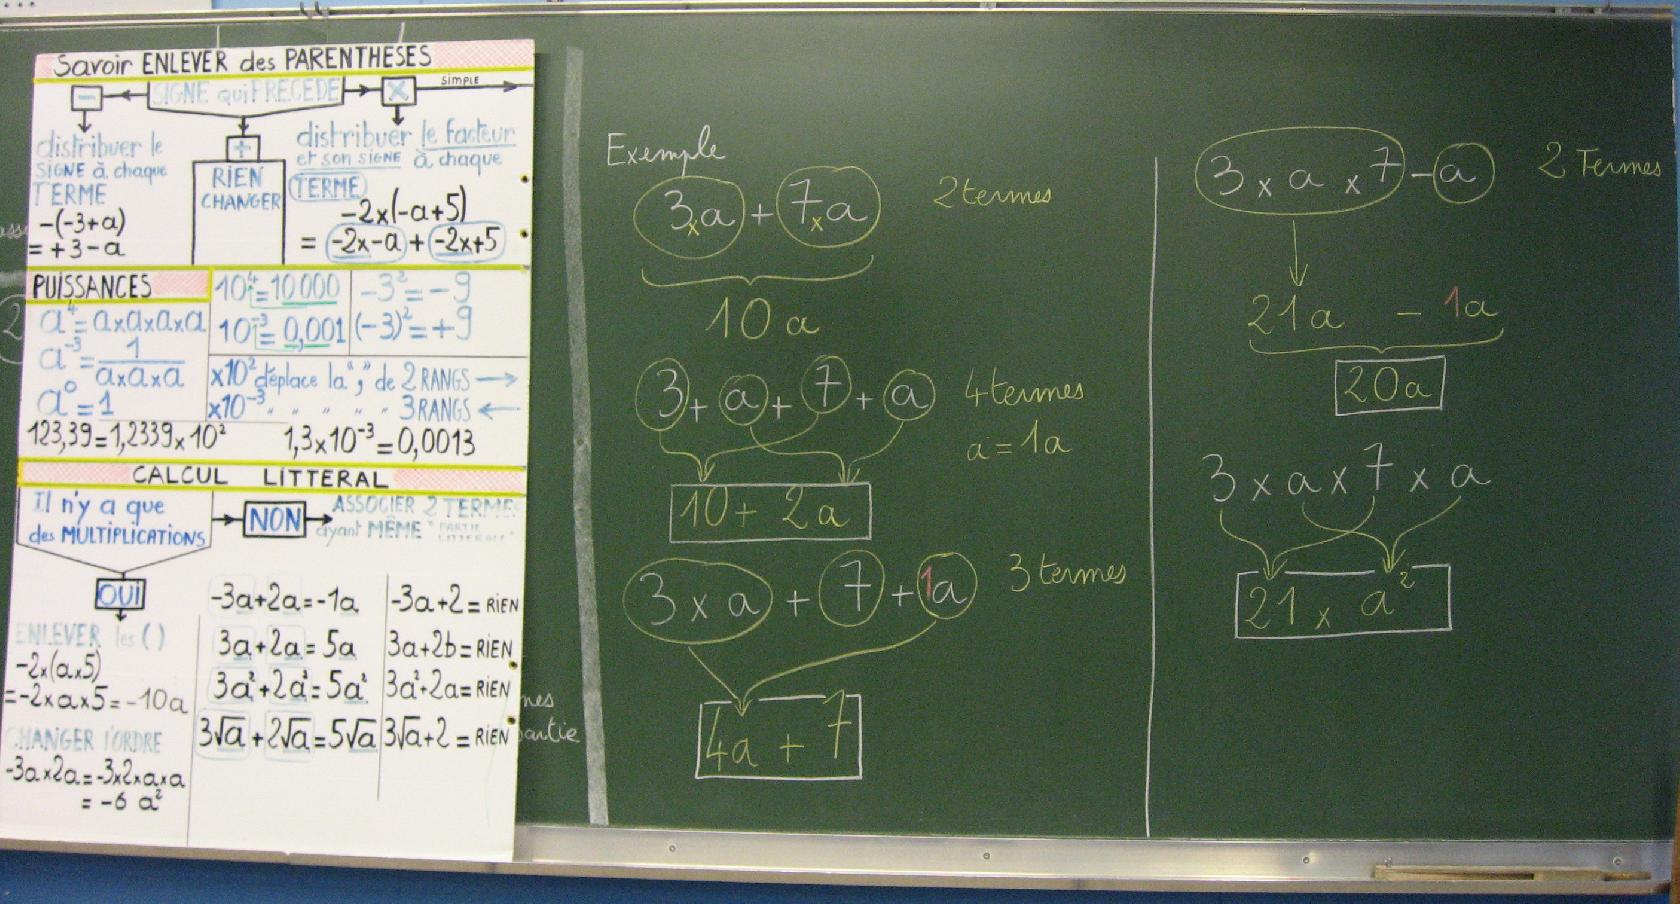 Savoir ENLEVER des PARENTHESES
- SIGNE qui PRECEDE × SIMPLE
distribuer le
SIGNE à chaque
TERME
-(-3+a)
= +3-a
+
RIEN
CHANGER
distribuer le facteur
et son SIGNE à chaque
TERME
-2×(-a+5)
= -2×-a + -2×+5
PUISSANCES
a⁴=a×a×a×a
a⁻³= 1/(a×a×a)
a⁰=1
10⁴=10 000
10⁻³=0,001
-3²=-9
(-3)²=+9
×10² déplace la "," de 2 RANGS →
×10⁻³ " " " " " 3 RANGS ←
123,39=1,2339×10² 1,3×10⁻³=0,0013
CALCUL LITTERAL
Il n'y a que
des MULTIPLICATIONS
NON
ASSOCIER 2 TERMES
ayant MÊME "PARTIE
LITTERALE"
OUI
ENLEVER les ( )
-2×(a×5)
=-2×a×5=-10a
CHANGER l'ORDRE
-3a×2a=-3×2×a×a
= -6 a²
-3a+2a=-1a
3a+2a=5a
3a²+2a²=5a²
3√a+2√a=5√a
-3a+2=RIEN
3a+2b=RIEN
3a²+2a=RIEN
3√a+2=RIEN
nes
partie
2
Exemple
3×a + 7×a 2 termes
10 a
3 + a + 7 + a 4 termes
a = 1a
10 + 2a
3 × a + 7 + 1a 3 termes
4a + 7
3 × a × 7 - a 2 Termes
21a - 1a
20a
3 × a × 7 × a
21 × a²